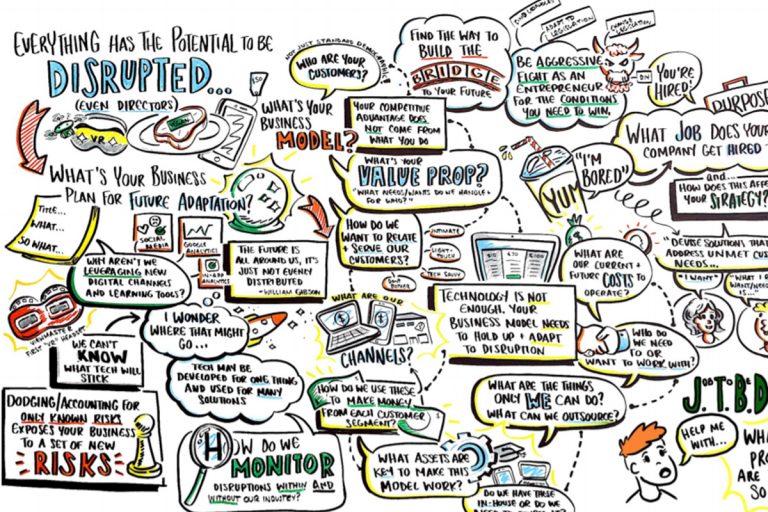 EVERYTHING HAS THE POTENTIAL TO BE
DISRUPTED...
(EVEN DIRECTORS)
VR
VEGAN
WHAT'S YOUR BUSINESS
PLAN FOR FUTURE ADAPTATION?
TITLE...
WHAT...
SO WHAT...
SOCIAL
MEDIA
GOOGLE
ANALYTICS
IN-APP
ANALYTICS
WHY AREN'T WE
LEVERAGING NEW
DIGITAL CHANNELS
AND LEARNING TOOLS?
THE FUTURE IS
ALL AROUND US, IT'S
JUST NOT EVENLY
DISTRIBUTED
-WILLIAM GIBSON
VIEWMASTER
FIRST "VR" HEADSET
I WONDER
WHERE THAT MIGHT
GO...
WE CAN'T
KNOW
WHAT TECH WILL
STICK
TECH MAY BE
DEVELOPED FOR ONE THING
AND USED FOR MANY
SOLUTIONS
DODGING/ACCOUNTING FOR
ONLY KNOWN RISKS
EXPOSES YOUR BUSINESS
TO A SET OF NEW
RISKS
HOW DO WE
MONITOR
DISRUPTIONS WITHIN AND
WITHOUT OUR INDUSTRY?
NOT JUST STANDARD DEMOGRAPHICS
WHO ARE YOUR
CUSTOMERS?
WHAT'S YOUR
BUSINESS
MODEL?
YOUR COMPETITIVE
ADVANTAGE DOES
NOT COME FROM
WHAT YOU DO
WHAT'S YOUR
VALUE PROP?
"WHAT NEEDS/WANTS DO WE HANDLE +
FOR WHO?"
HOW DO WE
WANT TO RELATE
+ SERVE OUR
CUSTOMERS?
INTIMATE
LIGHT-TOUCH
TECH SAVVY
DON'T BOTHER
WHAT ARE OUR
CHANNELS?
HOW DO WE USE THESE
TO MAKE MONEY
FROM EACH CUSTOMER
SEGMENT?
WHAT ASSETS ARE
KEY TO MAKE THIS
MODEL WORK?
DO WE HAVE THESE
IN-HOUSE OR DO WE
FIND THE WAY TO
BUILD THE
BRIDGE
TO YOUR FUTURE
ADAPT TO
LEGISLATION
CHANGE
LEGISLATION
BE AGGRESSIVE
FIGHT AS AN
ENTREPRENEUR
FOR THE CONDITIONS
YOU NEED TO WIN.
ON
YOU'RE
HIRED!
PURPOSE
WHAT JOB DOES YOUR
COMPANY GET HIRED
and...
HOW DOES THIS
YOUR STRATEGY?
"I'M
BORED"
YUM
WHAT ARE
OUR CURRENT +
FUTURE COSTS TO
OPERATE?
TECHNOLOGY IS NOT
ENOUGH. YOUR
BUSINESS MODEL NEEDS
TO HOLD UP + ADAPT
TO DISRUPTION
WHO DO
WE NEED
TO OR
WANT TO WORK WITH?
WHAT ARE THE THINGS
ONLY WE CAN DO?
WHAT CAN WE OUTSOURCE?
"DEVISE SOLUTIONS THAT
ADDRESS UNMET
NEEDS...
"I WANT"
J.T.B.D
HELP ME
WITH...
ARE
SO